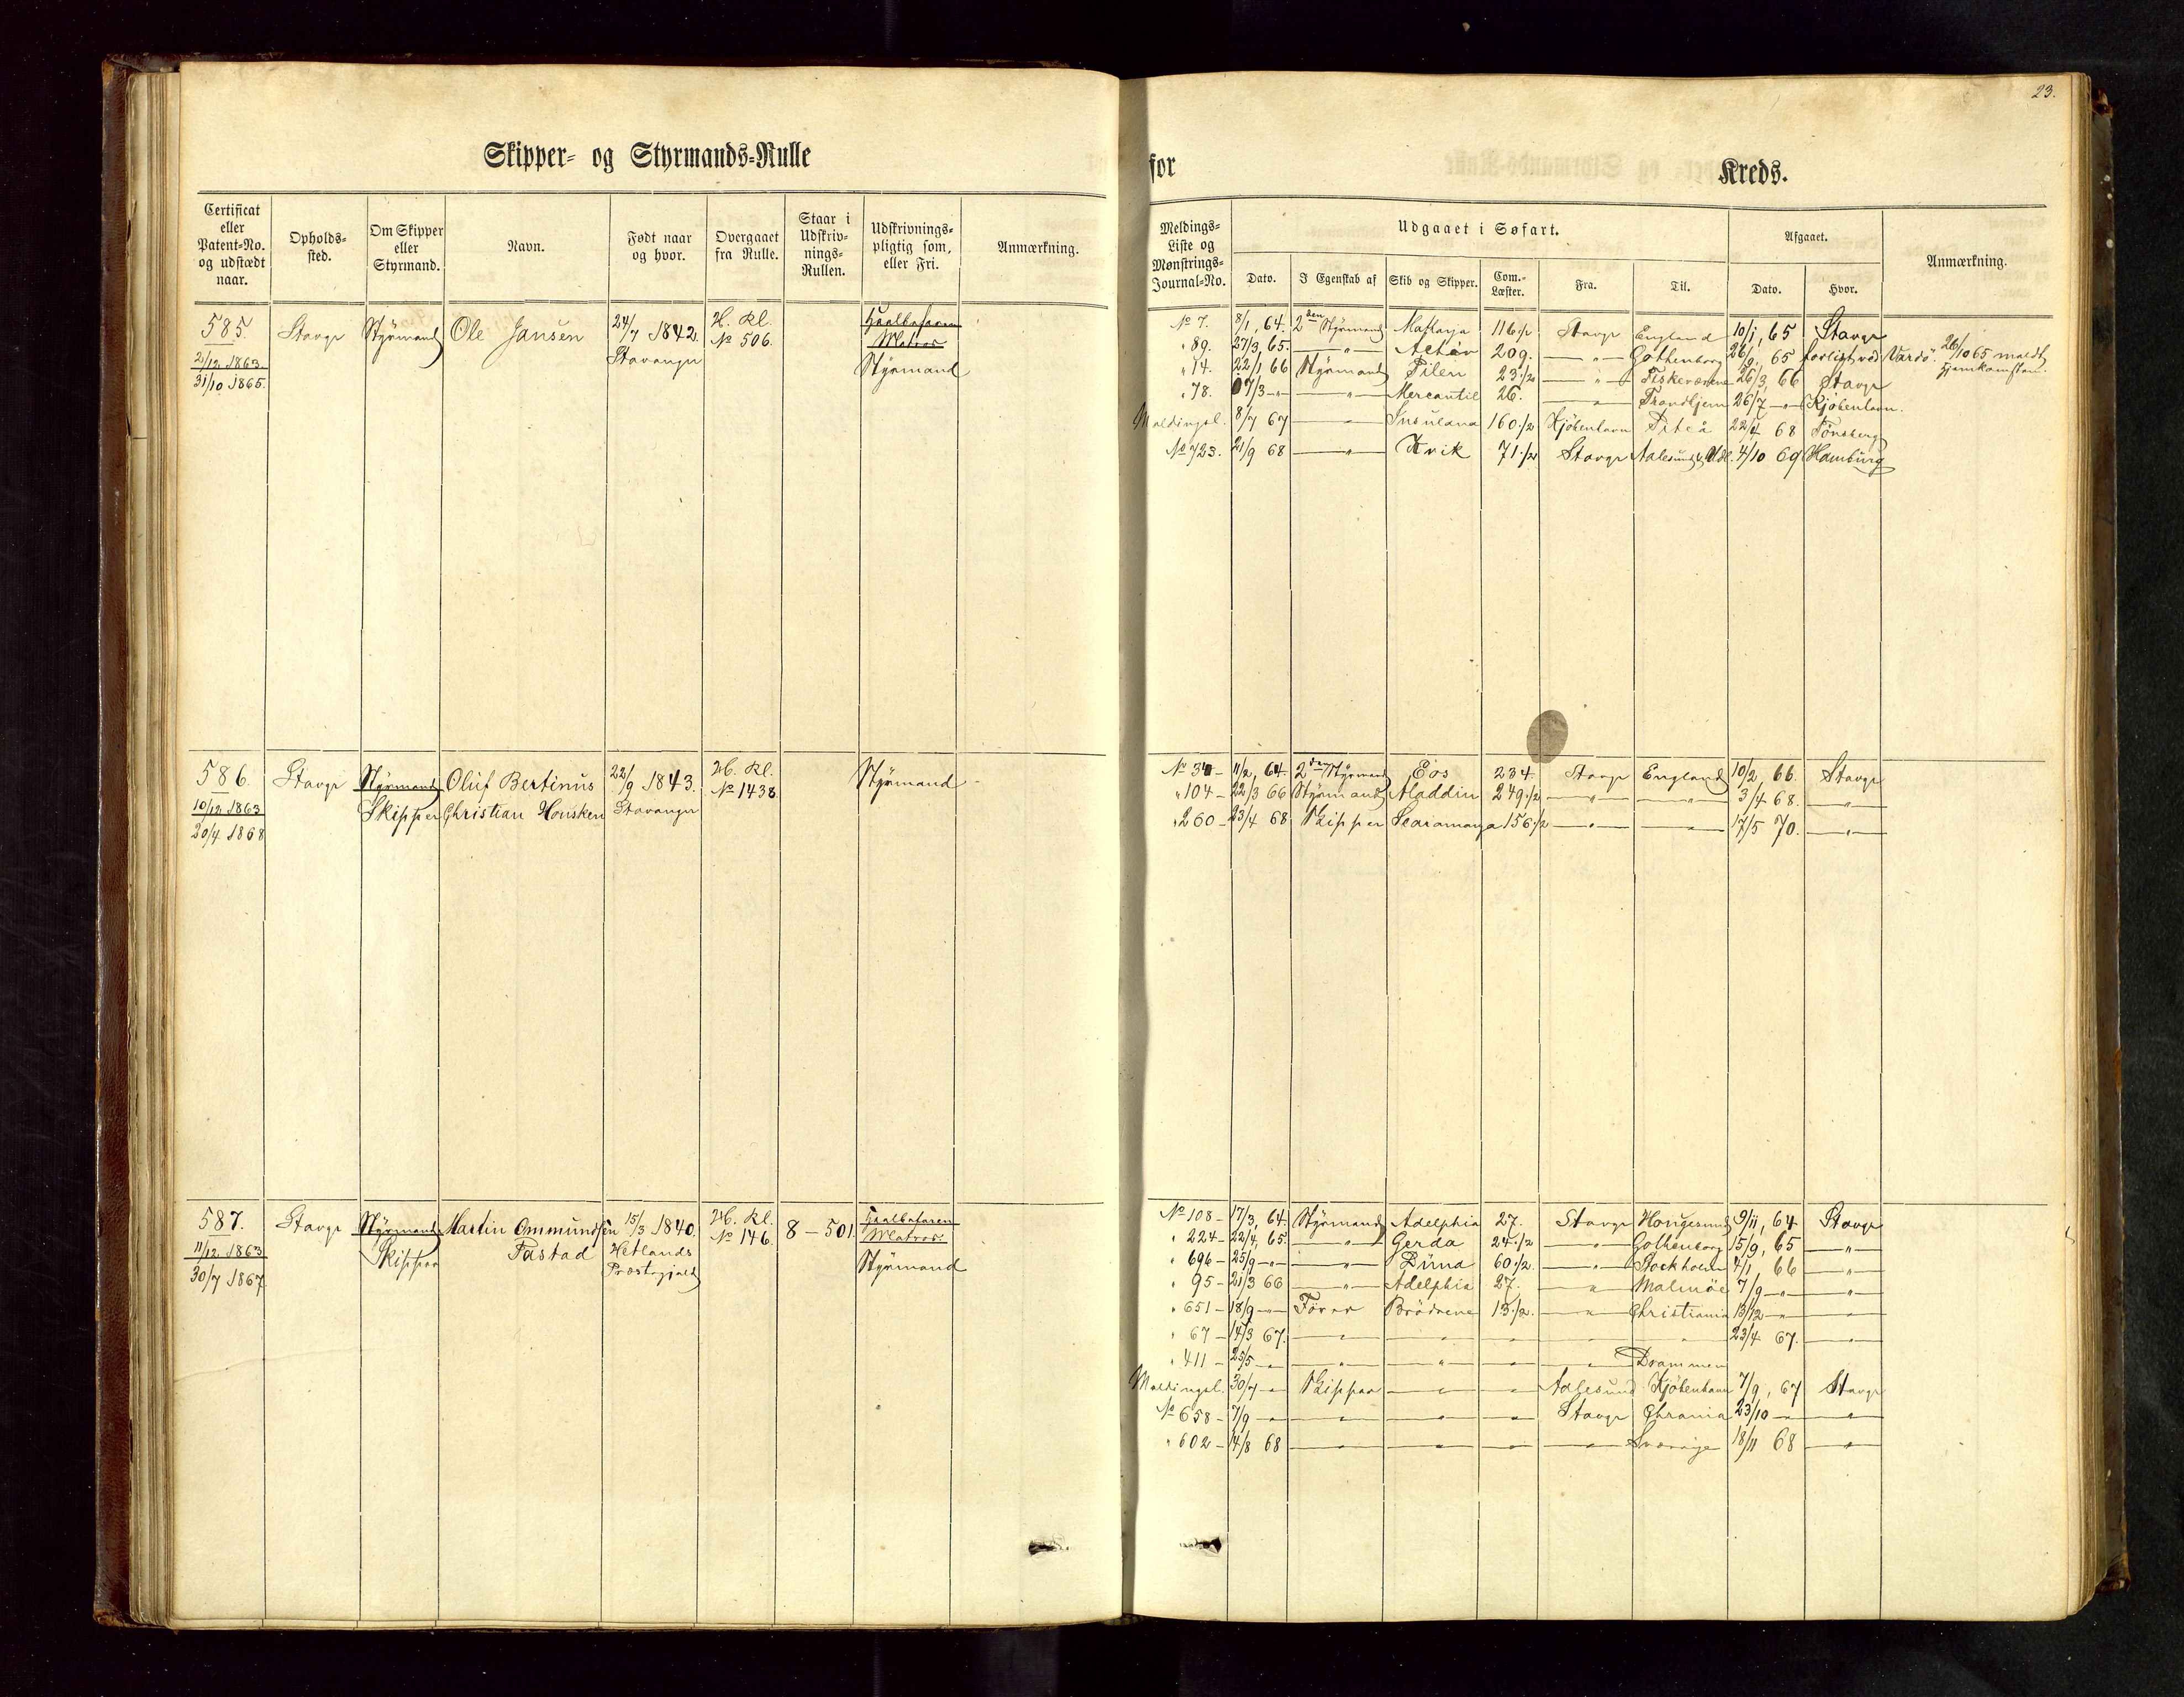 23.
Skipper- og Styrmands-Rulle for Kreds.
Certificat eller Patent-No. og udstædt naar.
Opholds-sted.
Om Skipper eller Styrmand.
Navn.
Født naar og hvor.
Overgaaet fra Rulle.
Staar i Udskriv-nings-Rullen.
Udskrivnings-pligtig som, eller Fri.
Anmærkning.
Meldings-Liste og Mønstrings-Journal-No.
Udgaaet i Søfart.
Dato.
I Egenskab af
Skib og Skipper.
Com.-Læster.
Fra.
Til.
Afgaaet.
Dato.
Hvor.
Anmærkning.
585. Stavgr Styrmand Ole Jansen 24/7 1842. H. Kl.
2/12 1863. Stavanger No 506. Halvbefaren Matros
31/10 1865. Styrmand
No 7. 8/1, 64. 2den Styrmand 116 1/2 Stavgr England 10/1, 65 Stavgr
" 89. 27/3, 65. — " — 209. — " — Gothenborg 26/9, 65 forlist ved Vardö. 26/10 65 meldt Hjemkomsten.
" 14. 22/1, 66 Styrmand Pilen 23 1/2 — " — Fiskeværene 26/3, 66 Stavgr
" 78. 7/3 — " — — " — Mercantil 26. — " — Trondhjem 26/7 — " — Kjöbenhavn.
Meldingsl. 8/7 67 — " — Insulana 160 1/2 Kjöbenhavn Piteå 22/4 68 Tönsberg
No 723. 21/9 68 — " — Ørvik 71 1/2 Stavgr Aalesund & Udl. 4/10 69 Hamburg
586. Stavgr Styrmand Oluf Bertinus 22/9 1843. H. Kl. Styrmand
10/12 1863 Skipper Christian Housken Stavanger No 1438
20/4 1868
No 34 — 11/2, 64. 2den Styrmand Eos 234. Stavgr England 10/2, 66. Stavgr
" 104 — 22/3 66 Styrmand Aladdin 249 1/2 — " — — " — 3/4 68. — " —
" 260 — 23/4 68 Skipper 156 1/2 — " — — " — 17/5 70. — " —
587. Stavgr Styrmand Martin Ommundsen 15/3 1840. H. Kl. 8 — 501. Halvbefaren
11/12 1863 Skipper Tastad Hetlands No 146. Matros.
30/7 1867. Præstegjeld Styrmand
No 108 — 17/3, 64. Styrmand Adelphia 27. Stavgr Hougesund 9/11, 64 Stavgr
" 224 — 22/4, 65. — " — Gerda 24 1/2 — " — Gothenborg 15/9, 65 — " —
" 696 — 25/9 — " — — " — Düna 60 1/2. — " — Stockholm 4/1 66 — " —
" 95 — 21/3 66 — " — Adelphia 27. — " — Malmöe 7/9 — " — — " —
" 651 — 18/9 — " — Förer Brödrene 13 1/2. — " — Christiania 13/12 — " — — " —
" 67 — 14/3 67. — " — — " — — " — — " — — " — 23/4 67. — " —
" 411 — 25/5 — " — — " — — " — — " — — " — Drammen
Meldingsl. 30/7 — " — Skipper — " — — " — Aalesund Kjöbenhavn 7/9, 67 Stavgr
No 658 — 7/9 — " — — " — — " — — " — Stavgr Chrania 23/10 — " — — " —
" 602 — 14/8 68 — " — — " — — " — — " — Sverige 18/11 68 — " —